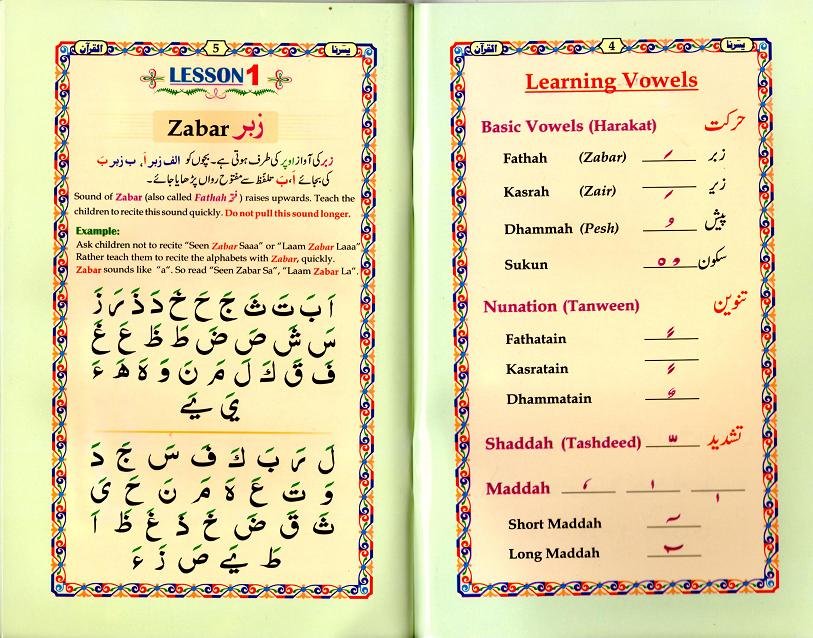 يسّرنا 4 القرآن
Learning Vowels
Basic Vowels (Harakat) حرکت
Fathah (Zabar) َ زبر
Kasrah (Zair) ِ زیر
Dhammah (Pesh) ُ پیش
Sukun ْ سکون
Nunation (Tanween) تنوین
Fathatain ً
Kasratain ٍ
Dhammatain ٌ
Shaddah (Tashdeed) ّ تشدید
Maddah
Short Maddah
Long Maddah
يسّرنا 5 القرآن
LESSON 1
Zabar زبر
زبر کی آواز اوپر کی طرف ہوتی ہے۔ بچوں کو الف زبر اَ، ب زبر بَ
کی بجائے اَ، بَ تلفّظ سے مفتوح رواں پڑھایا جائے۔
Sound of Zabar (also called Fathah) raises upwards. Teach the
children to recite this sound quickly. Do not pull this sound longer.
Example:
Ask children not to recite “Seen Zabar Saaa” or “Laam Zabar Laaa”
Rather teach them to recite the alphabets with Zabar, quickly.
Zabar sounds like “a”. So read “Seen Zabar Sa”, “Laam Zabar La”.
اَ بَ تَ ثَ جَ حَ خَ دَ ذَ رَ زَ
سَ شَ صَ ضَ طَ ظَ عَ غَ
فَ قَ كَ لَ مَ نَ وَ هَ ھَ ءَ
یَ ےَ
لَ رَ بَ كَ فَ سَ جَ دَ
وَ تَ عَ هَ مَ نَ حَ یَ
ثَ قَ ضَ خَ ذَ غَ ظَ اَ
طَ ےَ صَ زَ ءَ